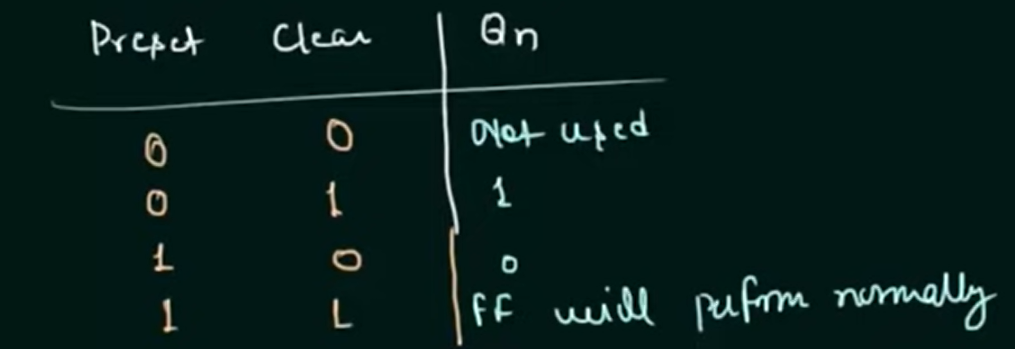 Preset Clear Qn
0 0 Not used
0 1 1
1 0 0
1 1 FF will perform normally